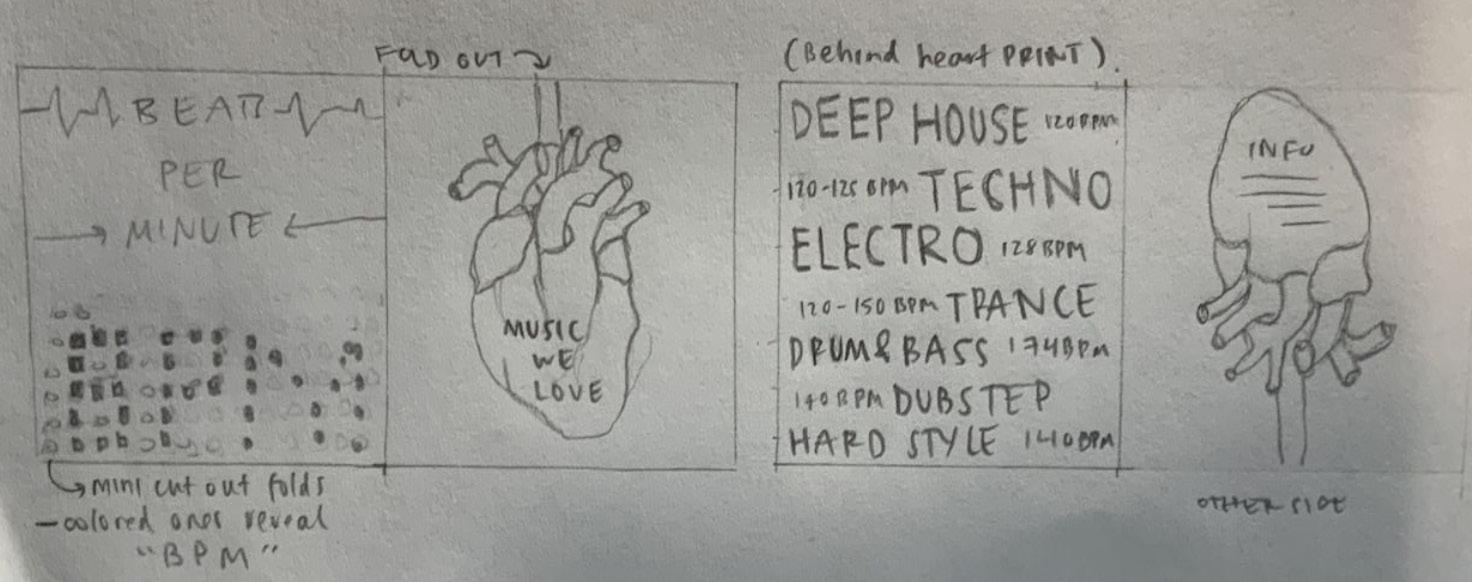 FOLD OUT
(Behind heart PRINT).
BEATS
PER
MINUTE
mini cut out folds
- colored ones reveal
"BPM"
MUSIC
WE
LOVE
DEEP HOUSE 120BPM
120-125 BPM TECHNO
ELECTRO 128BPM
120-150 BPM TRANCE
DRUM & BASS 174BPM
140BPM DUBSTEP
HARD STYLE 140BPM
INFO
OTHER SIDE